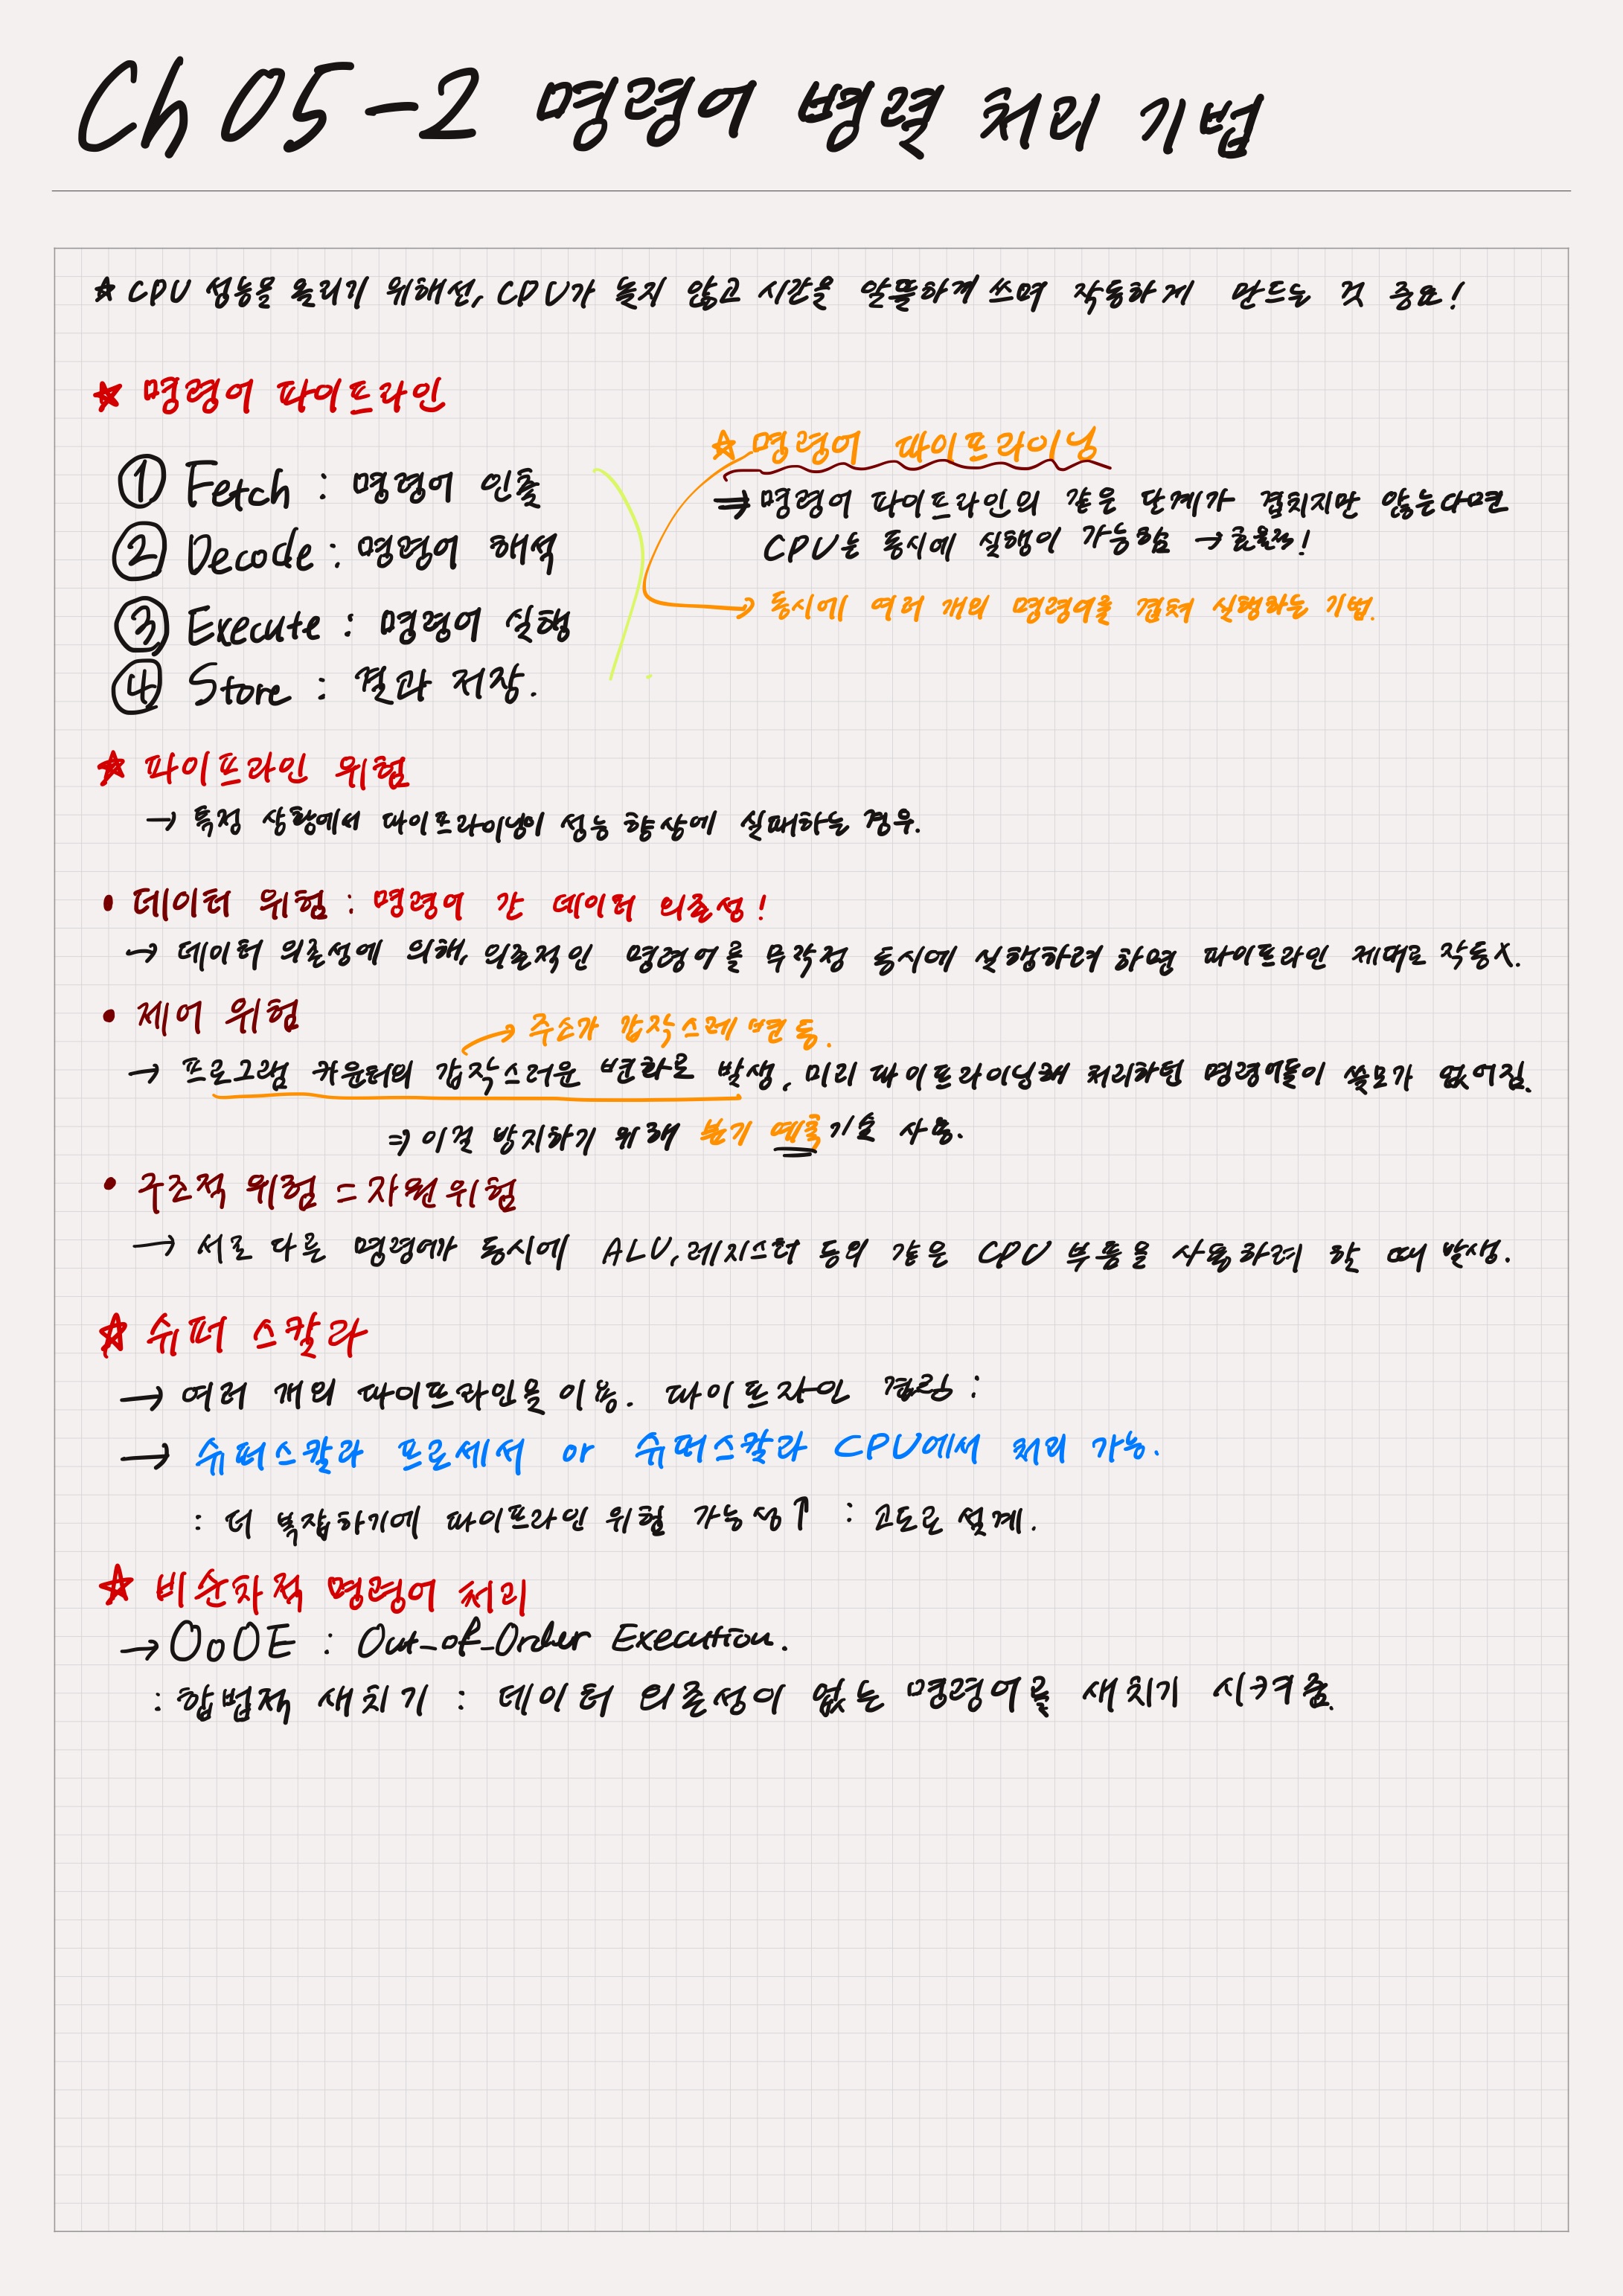 Ch 05-2 명령어 병렬 처리 기법
☆ CPU 성능을 올리기 위해선, CPU가 놀지 않고 시간을 알뜰하게 쓰며 작동하게 만드는 것 중요!
★ 명령어 파이프라인
① Fetch : 명령어 인출
② Decode : 명령어 해석
③ Execute : 명령어 실행
④ Store : 결과 저장.
☆ 명령어 파이프라이닝
⇒ 명령어 파이프라인의 같은 단계가 겹치지만 않는다면
CPU는 동시에 실행이 가능함 → 효율적!
→ 동시에 여러 개의 명령어를 겹쳐 실행하는 기법.
★ 파이프라인 위험
→ 특정 상황에서 파이프라이닝이 성능 향상에 실패하는 경우.
• 데이터 위험 : 명령어 간 데이터 의존성!
→ 데이터 의존성에 의해, 의존적인 명령어를 무작정 동시에 실행하려 하면 파이프라인 제대로 작동X.
• 제어 위험
→ 주소가 갑작스레 변동.
→ 프로그램 카운터의 갑작스러운 변화로 발생, 미리 파이프라이닝해 처리하던 명령어들이 쓸모가 없어짐.
⇒ 이걸 방지하기 위해 분기 예측 기술 사용.
• 구조적 위험 = 자원 위험
→ 서로 다른 명령어가 동시에 ALU, 레지스터 등의 같은 CPU 부품을 사용하려 할 때 발생.
★ 슈퍼 스칼라
→ 여러 개의 파이프라인을 이용. 파이프라인
→ 슈퍼스칼라 프로세서 or 슈퍼스칼라 CPU에서 처리 가능.
: 더 복잡하기에 파이프라인 위험 가능성↑ : 고도로 설계.
★ 비순차적 명령어 처리
→ OoOE : Out-of-Order Execution.
: 합법적 새치기 : 데이터 의존성이 없는 명령어를 새치기 시켜줌.